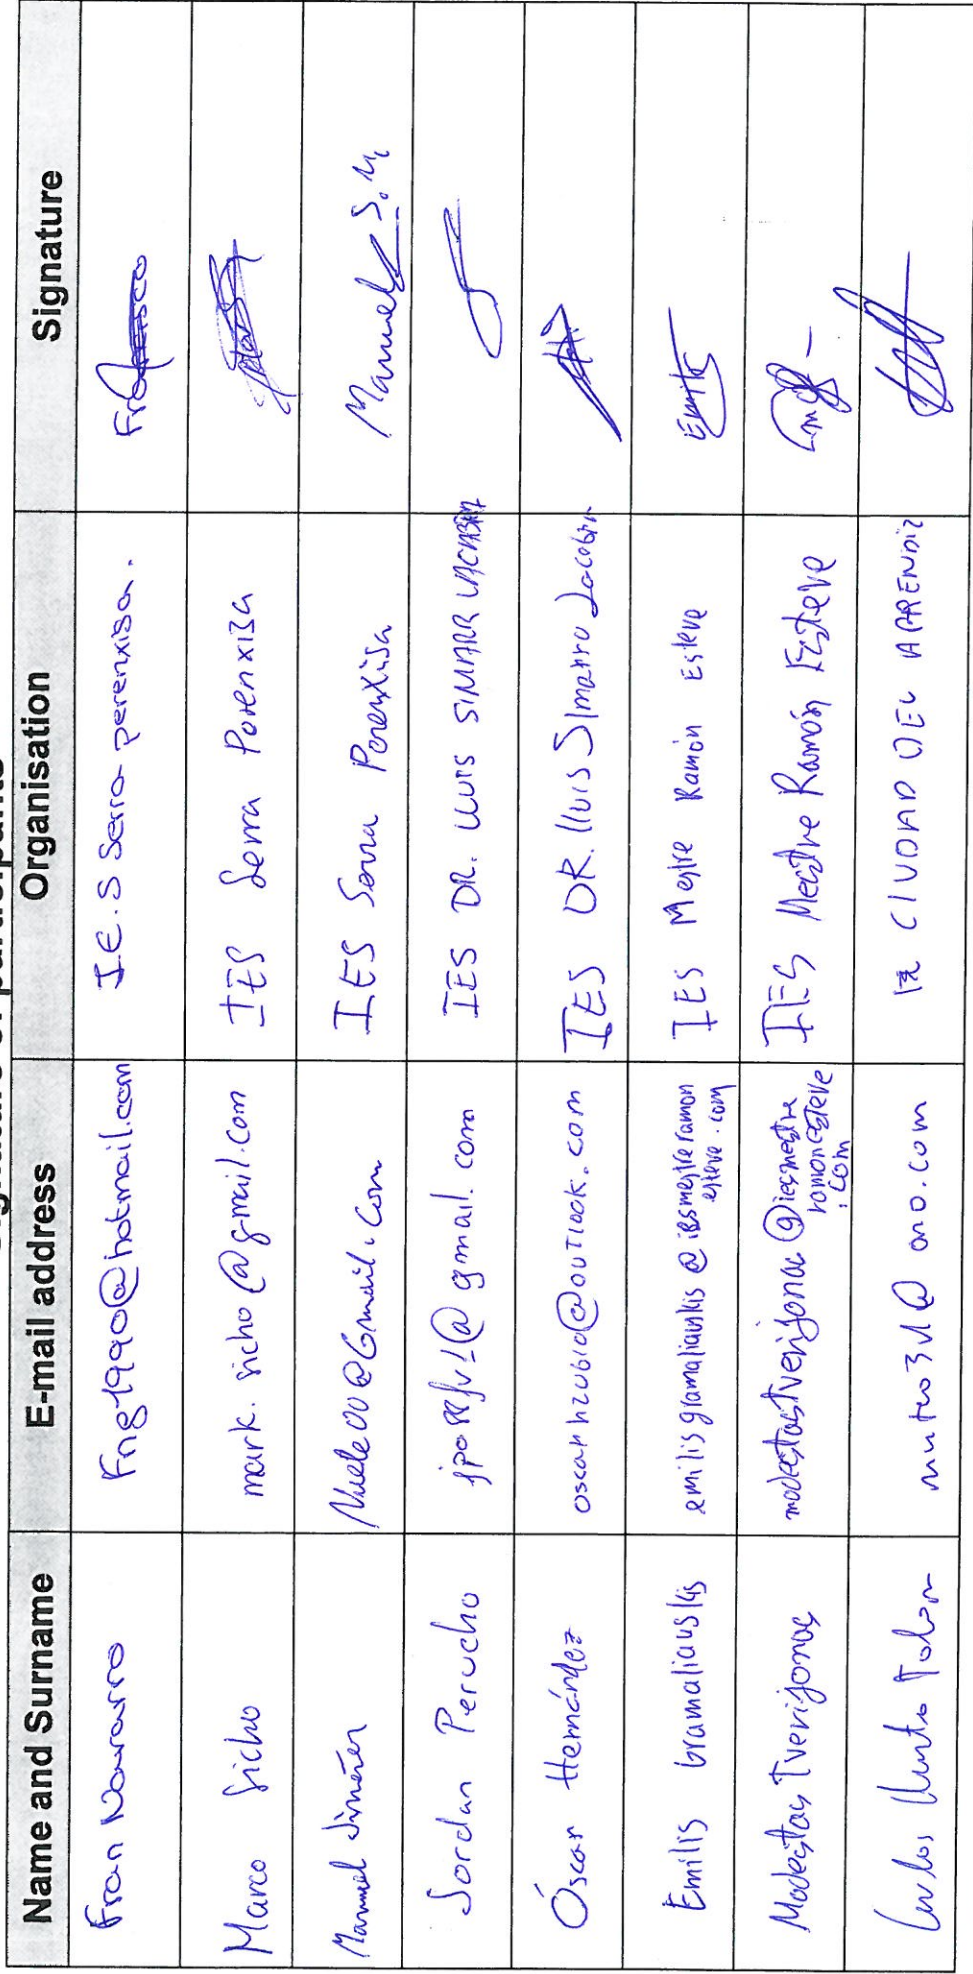 Signature of participants
Name and Surname E-mail address Organisation Signature
Fran Navarro Fng1990@hotmail.com I.E.S Serra perenxisa. Francisco
Marco Sicho mark.sicho@gmail.com IES Serra Perenxisa
Manuel Jiménez IES Serra Perenxisa Manuel
Jordan Perucho @gmail.com IES DR. LLUIS SIMARR
Óscar Hernández oscarhzubia@outlook.com IES DR. lluis Simarro Lacabra
Emilis Gramaliauskis emilisgramaliauskis@iesmestreramon IES Mestre Ramón Esteve Emilis
esteve.com
Modestas Tverijonas modestastverijonas@iesmestre IES Mestre Ramón Esteve
ramonesteve
.com
Carlos @ono.com la CIUDAD DEL APRENDIZ